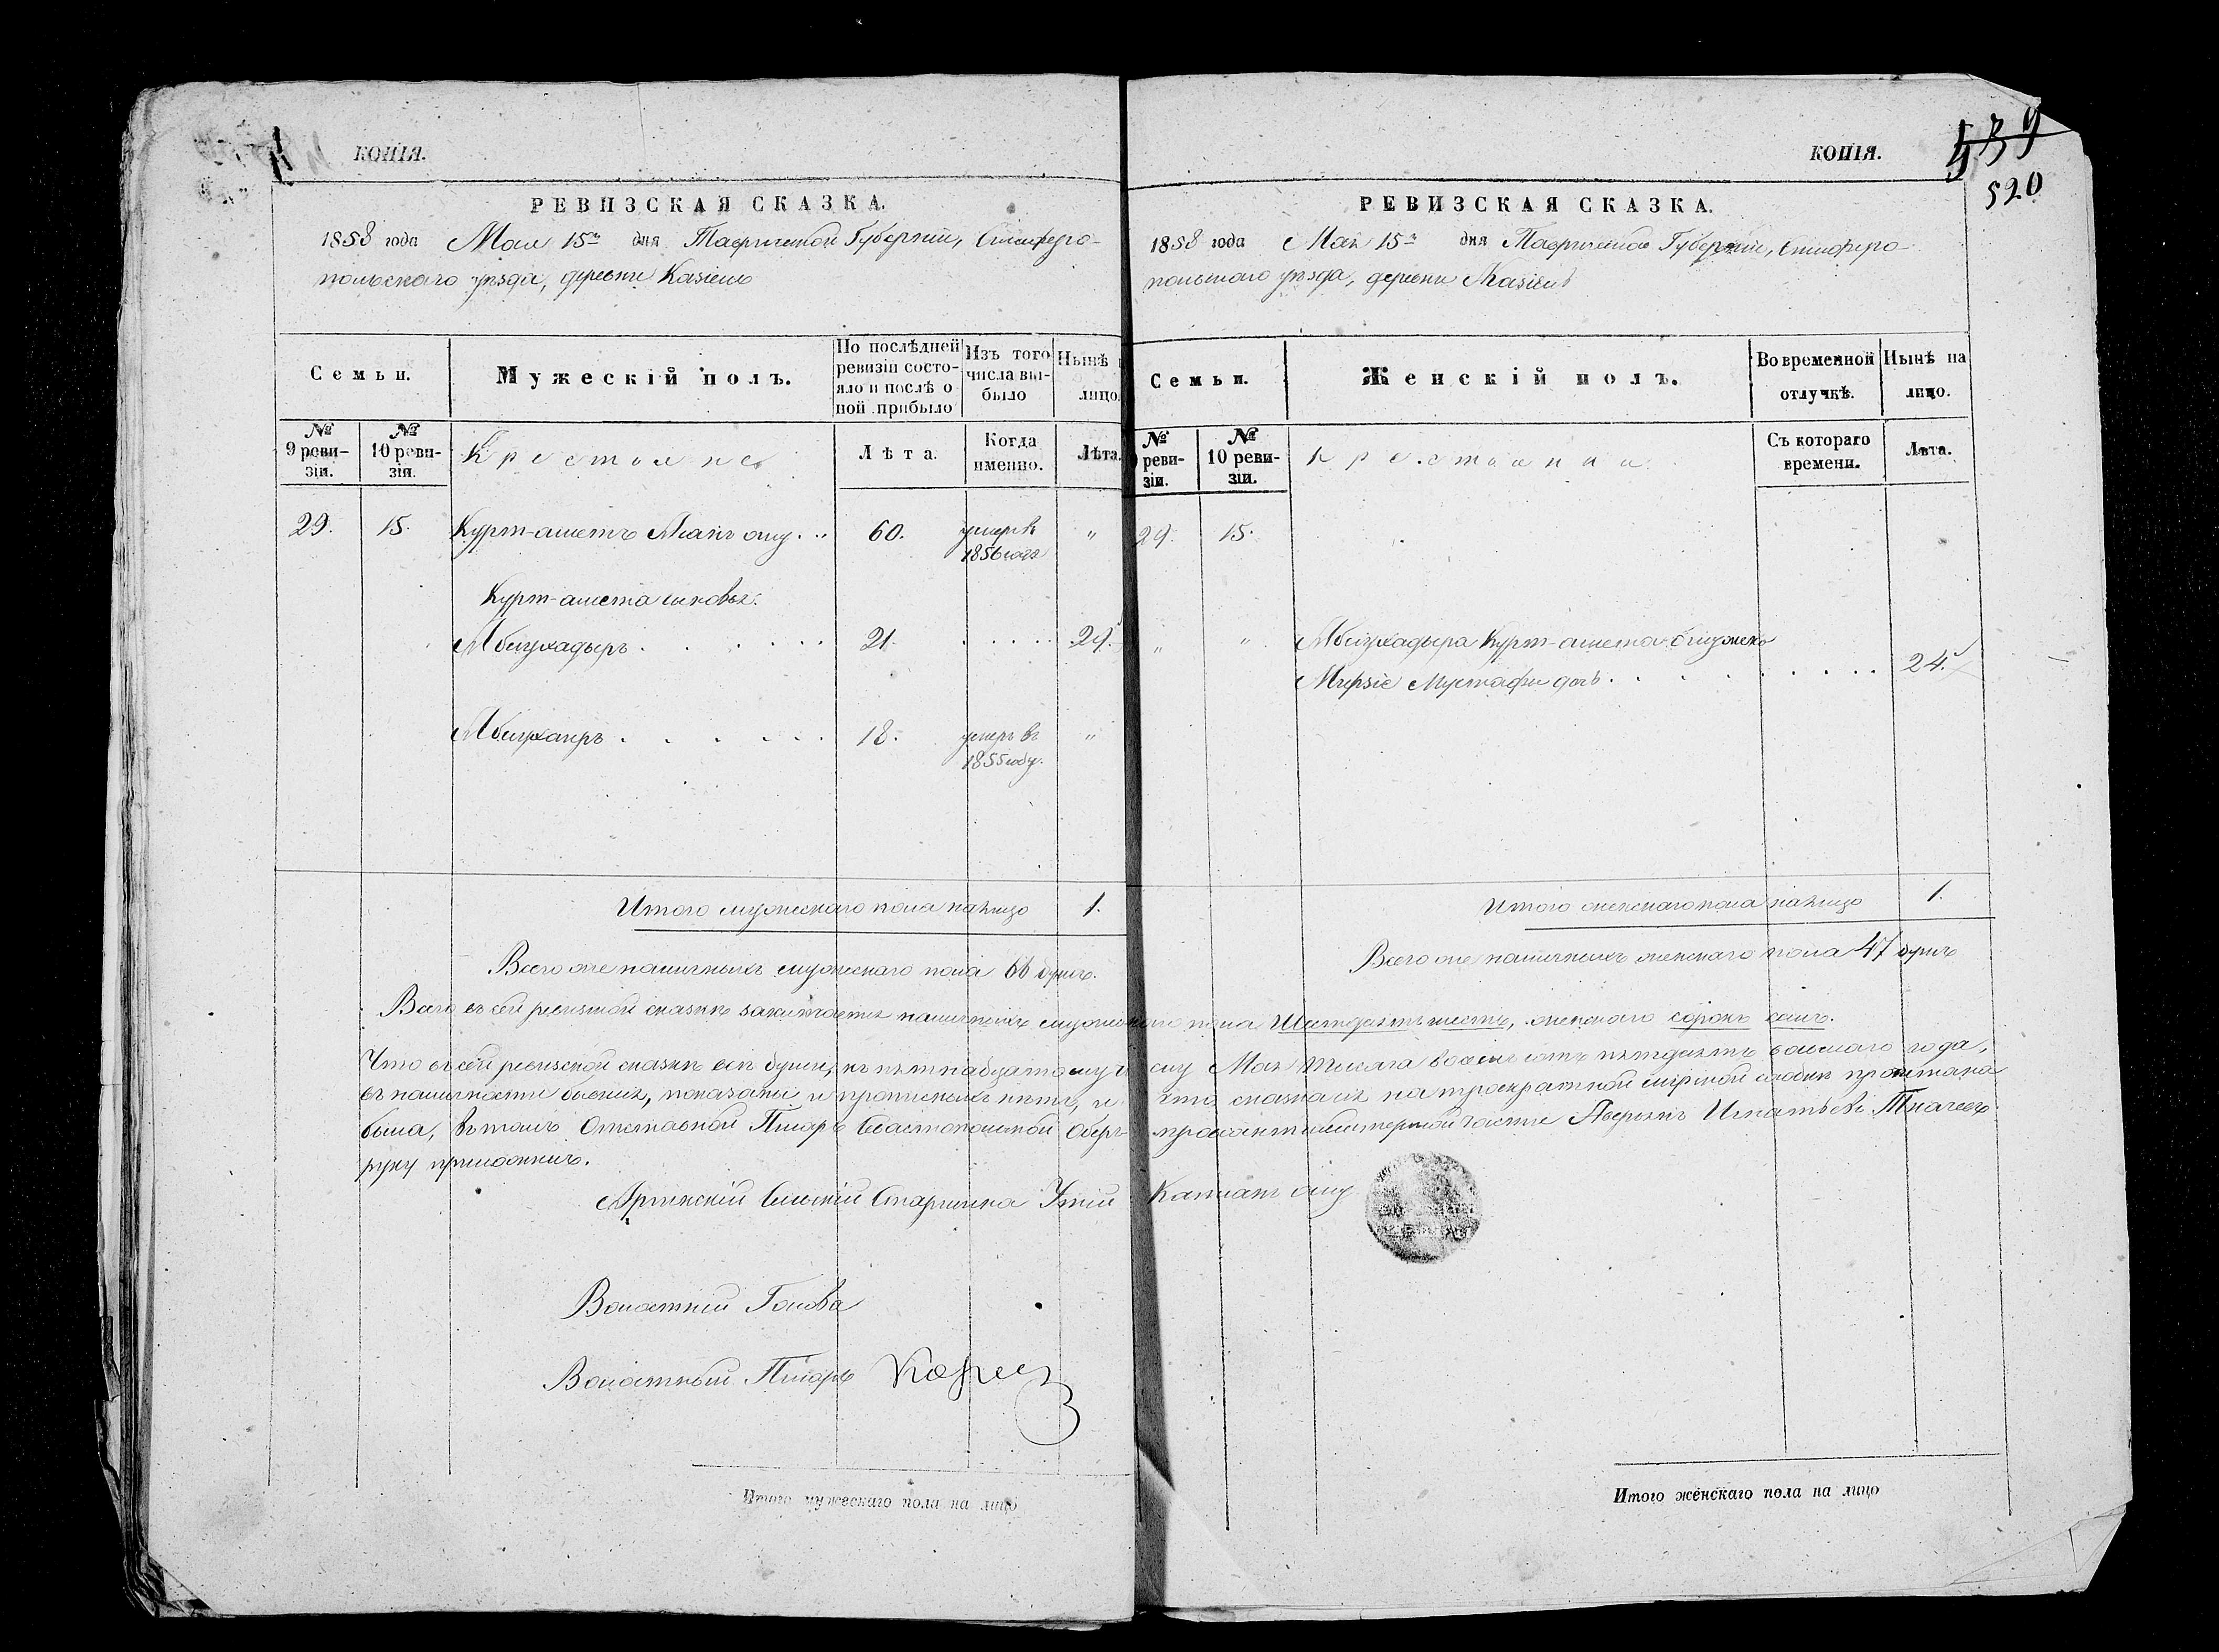 КОПІЯ.
РЕВИЗСКАЯ СКАЗКА.
1858 года Мая 15го дня Таврической Губерніи, Симферо-
польскаго уѣзда, деревни Казіевъ
Семьи.
Мужескій полъ.
По послѣдней
ревизіи состо-
яло и послѣ о
ной прибыло
Изъ того
числа вы-
было
Нынѣ
лицо
№
9 реви-
зіи.
№
10 реви-
зіи.
Крестьяне
Лѣта.
Когда
именно.
Лѣта.
29. 15. Курт-аметъ Акай оглу . . 60. умеръ въ "
1856 года
Курт-амета сыновья:
Абдулкадыръ . . . . . . 21. . . . . 29.
Абдулкаиръ . . . . . . 18. умеръ въ "
1855 году.
Итого мужескаго пола налицо 1.
Всего же наличныхъ мужескаго пола 66 душъ.
КОПІЯ.
539
520
РЕВИЗСКАЯ СКАЗКА.
1858 года Мая 15го дня Таврической Губерніи, Симферо-
польскаго уѣзда, деревни Казіевъ
Семьи.
Женскій полъ.
Во временной
отлучкѣ.
Нынѣ на
лицо.
№
реви-
зіи.
№
10 реви-
зіи.
Крестьянки
Съ котораго
времени.
Лѣта.
29. 15.
" " Абдулкадыра Курт-амета оглу жена
Мерзіе Мустафы дочь . . . . . . . . 24.
Итого женскаго пола налицо 1.
Всего же наличныхъ женскаго пола 47 душъ
Всего въ сей ревизской сказкѣ заключается наличныхъ мужескаго пола Шестдесятъ шесть, женскаго сорокъ семь.
Что въ сей ревизской сказкѣ всѣ души, къ пятнадцатому числу Мая тысяча восемь сотъ пятдесятъ осьмаго года,
въ наличности бывшія, показаны и прописныхъ нѣтъ, и что сказка сія на троекратной мірской сходкѣ прочитана
была, въ томъ Отставной Писарь Севастопольской Оберъ-провіантмейстерской части Аверьянъ Игнатьевъ Ткачевъ
руку приложилъ.
Аргинскій Сельскій Старшина Утій Капланъ оглу
Волостной Голова
Волостный Писарь
Итого мужескаго пола на лицо
Итого женскаго пола на лицо